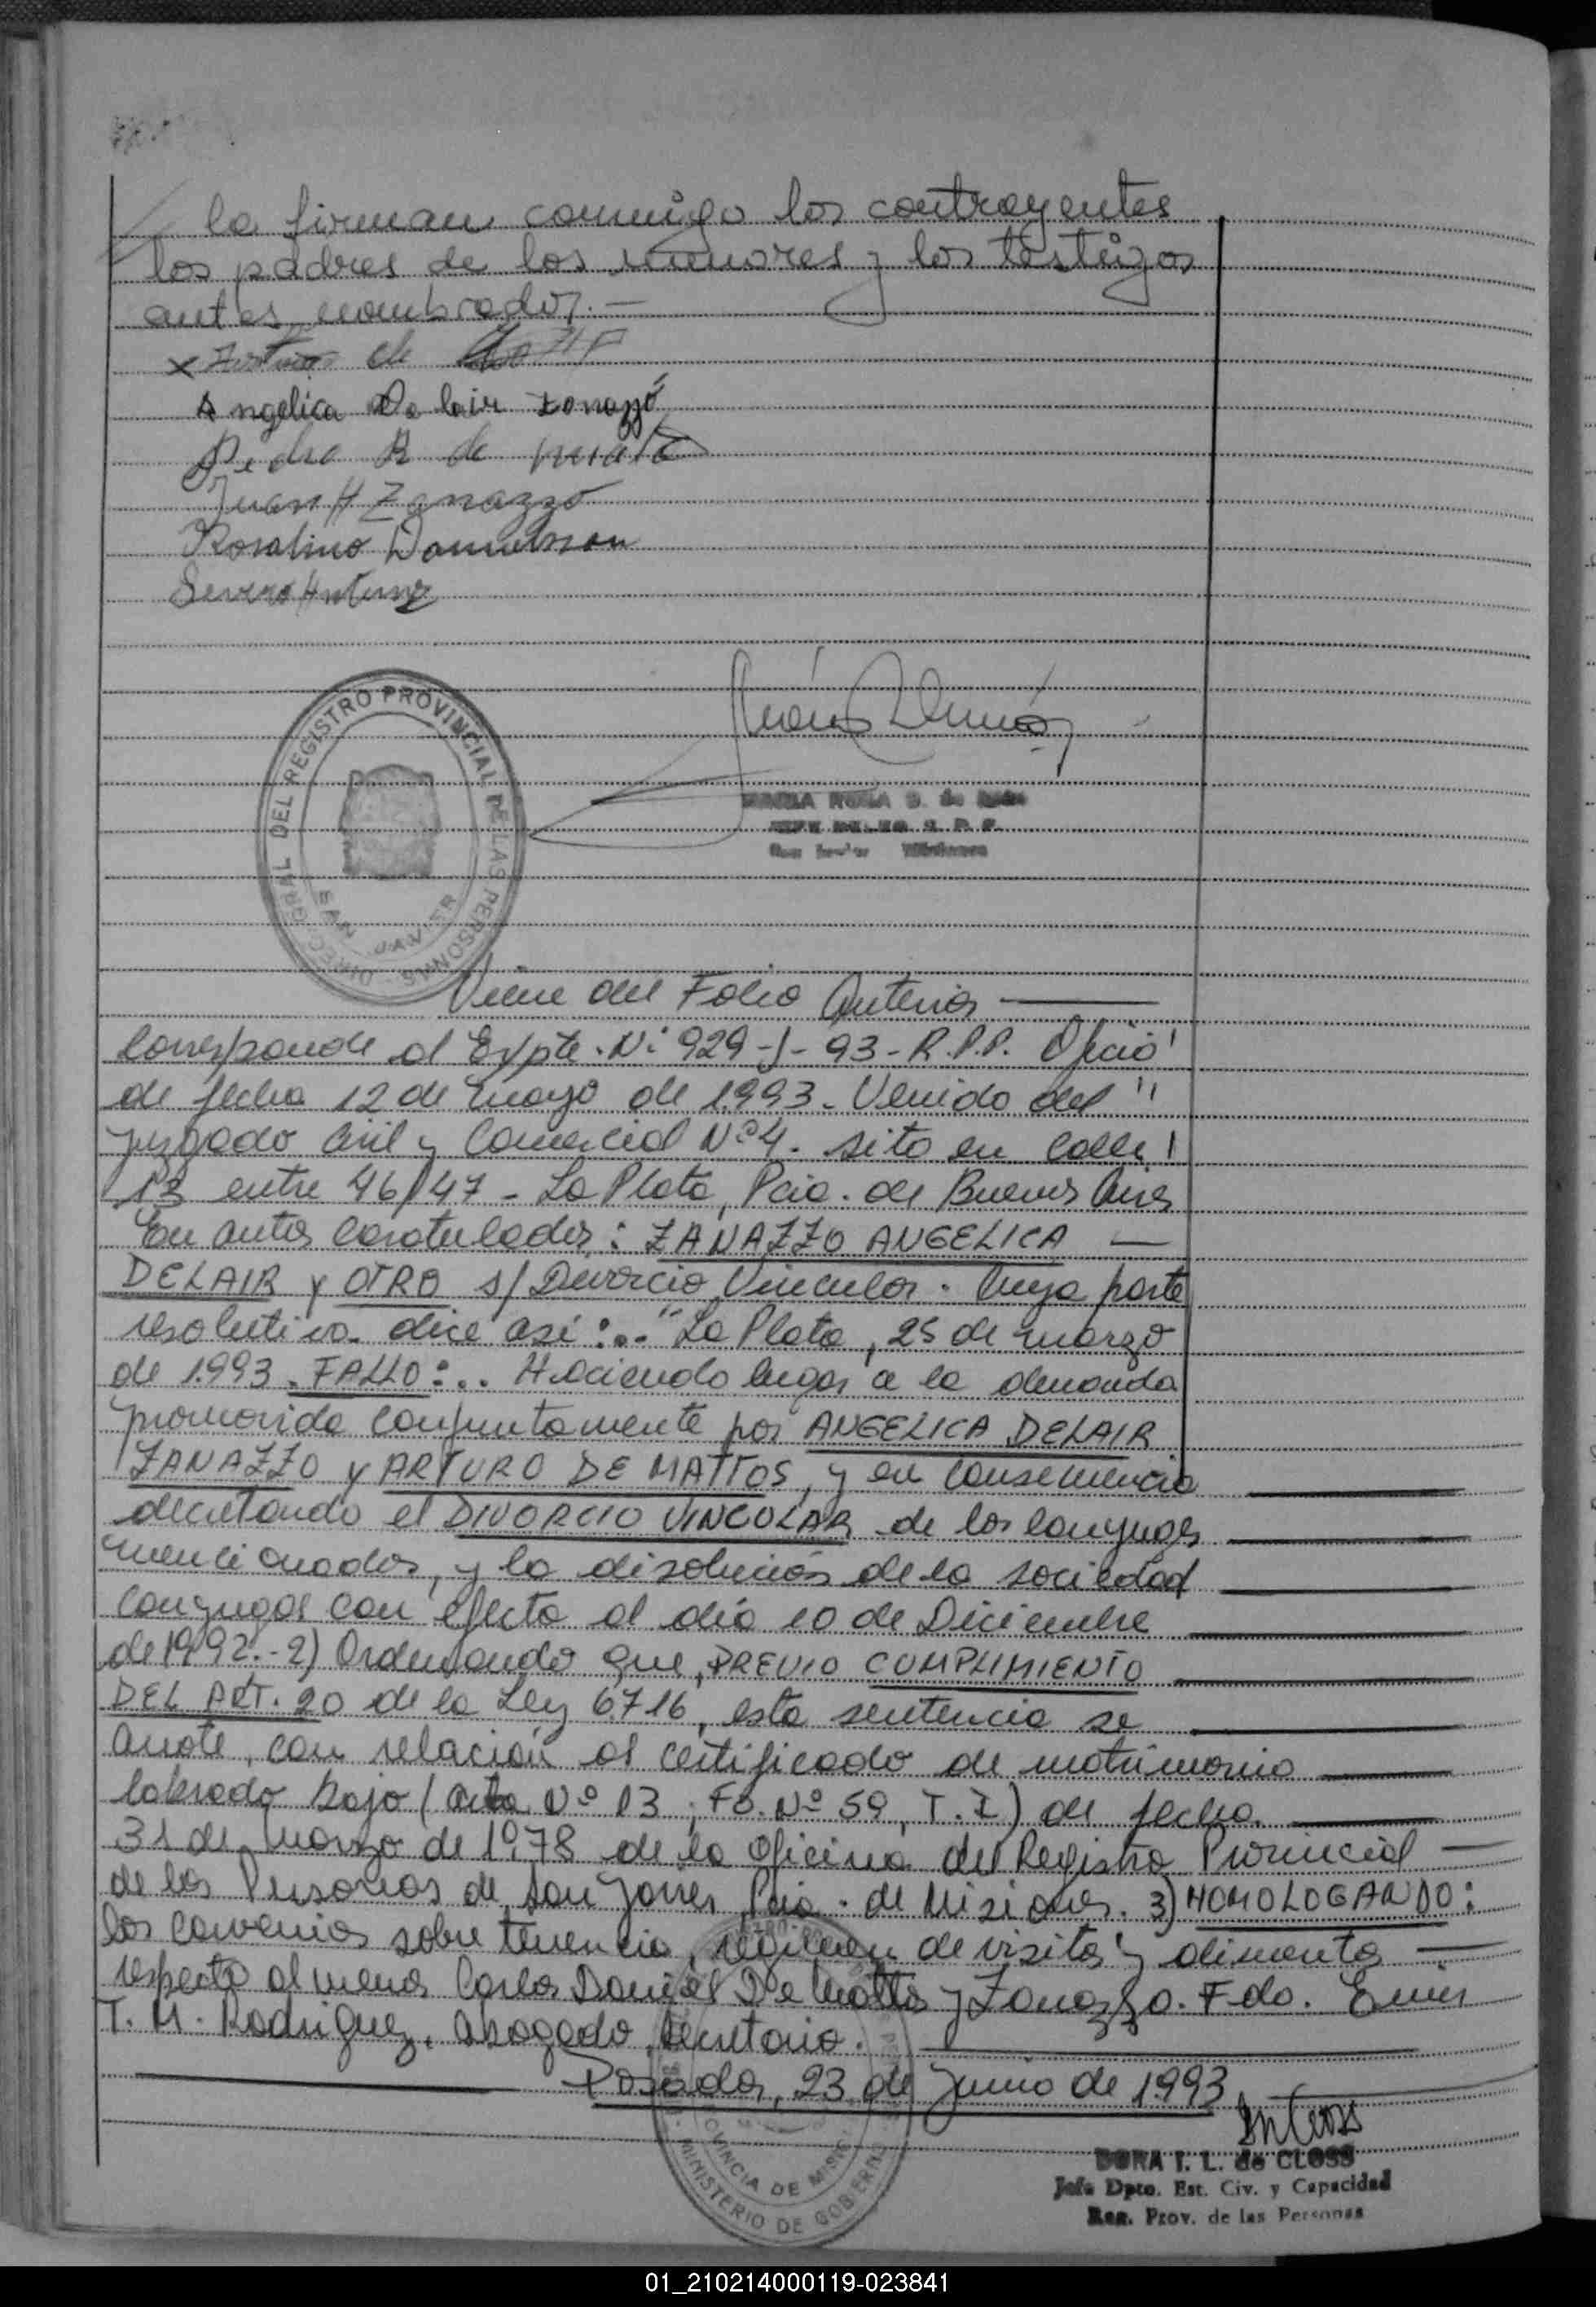 la firman conmigo los contrayentes
los padres de los menores y los testigos
antes nombrados.—
x Arturo de
Angelica Delair Zanazzó
Pedro R de
Juan H Zanazzo
Rosalino
Severo Antunez
DIREC. GRAL DEL REGISTRO PROVINCIAL DE LAS PERSONAS
SAN JAVIER
Viene del Folio Anterior —
Corresponde al Expte. Nº 929-J-93-R.P.P. Oficio '
de fecha 12 de mayo de 1.993. Venido del "
Juzgado Civil y Comercial Nº 4. sito en calle '
13 entre 46/47 - La Plata, Pcia. de Buenos Aires
En autos caratulados: ZANAZZO ANGELICA —
DELAIR y OTRO s/ Divorcio Vincular. Cuya parte
resolutiva dice así:.. "La Plata, 25 de marzo
de 1.993. FALLO:.. Haciendo lugar a la demanda
promovida conjuntamente por ANGELICA DELAIR
ZANAZZO y ARTURO DE MATTOS, y en consecuencia —
decretando el DIVORCIO VINCULAR de los conyuges —
mencionados, y la disolución de la sociedad —
conyugal con efecto al día 10 de Diciembre —
de 1992.- 2) Ordenando que, PREVIO CUMPLIMIENTO —
DEL ART. 20 de la Ley 6716, esta sentencia se —
anote, con relación al certificado de matrimonio —
labrado bajo (Acta Nº 13, Fo. Nº 59, T. I) de fecha —
31 de marzo de 1978 de la Oficina del Registro Provincial —
de las Personas de San Javier, Pcia. de Misiones. 3) HOMOLOGANDO:
los convenios sobre tenencia, régimen de visita y alimentos —
respecto al menor Carlos Daniel De Mattos y Zanazzo. Fdo.
T. M. Rodriguez. Abogado Secretario. —
— Posadas, 23 de Junio de 1.993 —
DORA T. L. de CLOSS
Jefe Dpto. Est. Civ. y Capacidad
Reg. Prov. de las Personas
PROVINCIA DE MISIONES
MINISTERIO DE GOBIERNO
01_210214000119-023841